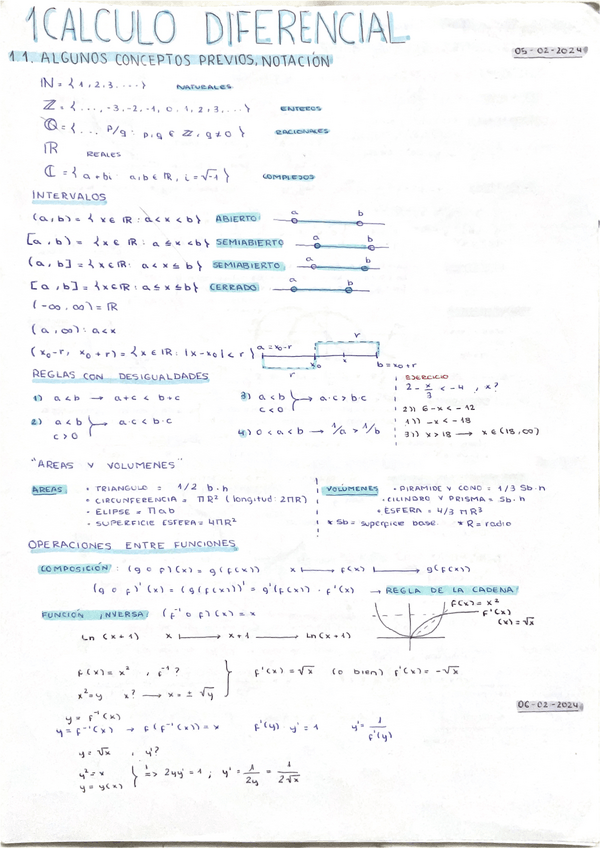 1 CALCULO DIFERENCIAL
05-02-2024
1.1. ALGUNOS CONCEPTOS PREVIOS. NOTACIÓN
ℕ = { 1, 2, 3, .... } NATURALES
ℤ = { ..., -3, -2, -1, 0, 1, 2, 3, ... } ENTEROS
ℚ = { ... p/q : p, q ∈ ℤ, q ≠ 0 } RACIONALES
ℝ REALES
ℂ = { a + bi a, b ∈ ℝ, i = √-1 } COMPLEJOS
INTERVALOS
(a, b) = { x ∈ ℝ : a < x < b } ABIERTO a b
[a, b) = { x ∈ ℝ : a ≤ x < b } SEMIABIERTO a b
(a, b] = { x ∈ ℝ : a < x ≤ b } SEMIABIERTO a b
[a, b] = { x ∈ ℝ : a ≤ x ≤ b } CERRADO a b
(-∞, ∞) = ℝ
(a, ∞) : a < x
(x₀-r, x₀+r) = { x ∈ ℝ : |x-x₀| < r } a = x₀-r r x₀ x r b = x₀+r
REGLAS CON DESIGUALDADES
1) a < b → a+c < b+c
2) a < b c > 0 } → a·c < b·c
3) a < b c < 0 } → a·c > b·c
4) 0 < a < b → 1/a > 1/b
EJERCICIO
2 - x/3 < -4 , x?
2)) 6 - x < -12
1)) -x < -18
3)) x > 18 → x ∈ (18, ∞)
"AREAS Y VOLUMENES"
AREAS • TRIANGULO = 1/2 b·h
• CIRCUNFERENCIA = πR² (longitud: 2πR)
• ELIPSE = πab
• SUPERFICIE ESFERA = 4πR²
VOLÚMENES • PIRAMIDE Y CONO = 1/3 Sb·h
• CILINDRO Y PRISMA = Sb·h
• ESFERA = 4/3 πR³
* Sb = superficie base * R = radio
OPERACIONES ENTRE FUNCIONES
COMPOSICIÓN : (g o f)(x) = g(f(x)) x → f(x) → g(f(x))
(g o f)'(x) = (g(f(x)))' = g'(f(x)) · f'(x) → REGLA DE LA CADENA
FUNCIÓN INVERSA: (f⁻¹ o f)(x) = x
f(x) = x²
f⁻¹(x)
(x) = √x
Ln (x+1) x → x+1 → Ln(x+1)
f(x) = x² , f⁻¹?
x² = y x? → x = ± √y
f⁻¹(x) = √x (o bien) f⁻¹(x) = -√x
06-02-2024
y = f⁻¹(x)
y = f⁻¹(x) → f(f⁻¹(x)) = x f'(y) · y' = 1 y' = 1/f'(y)
y = √x , y'?
y² = x
y = y(x) } => 2yy' = 1 ; y' = 1/2y = 1/2√x